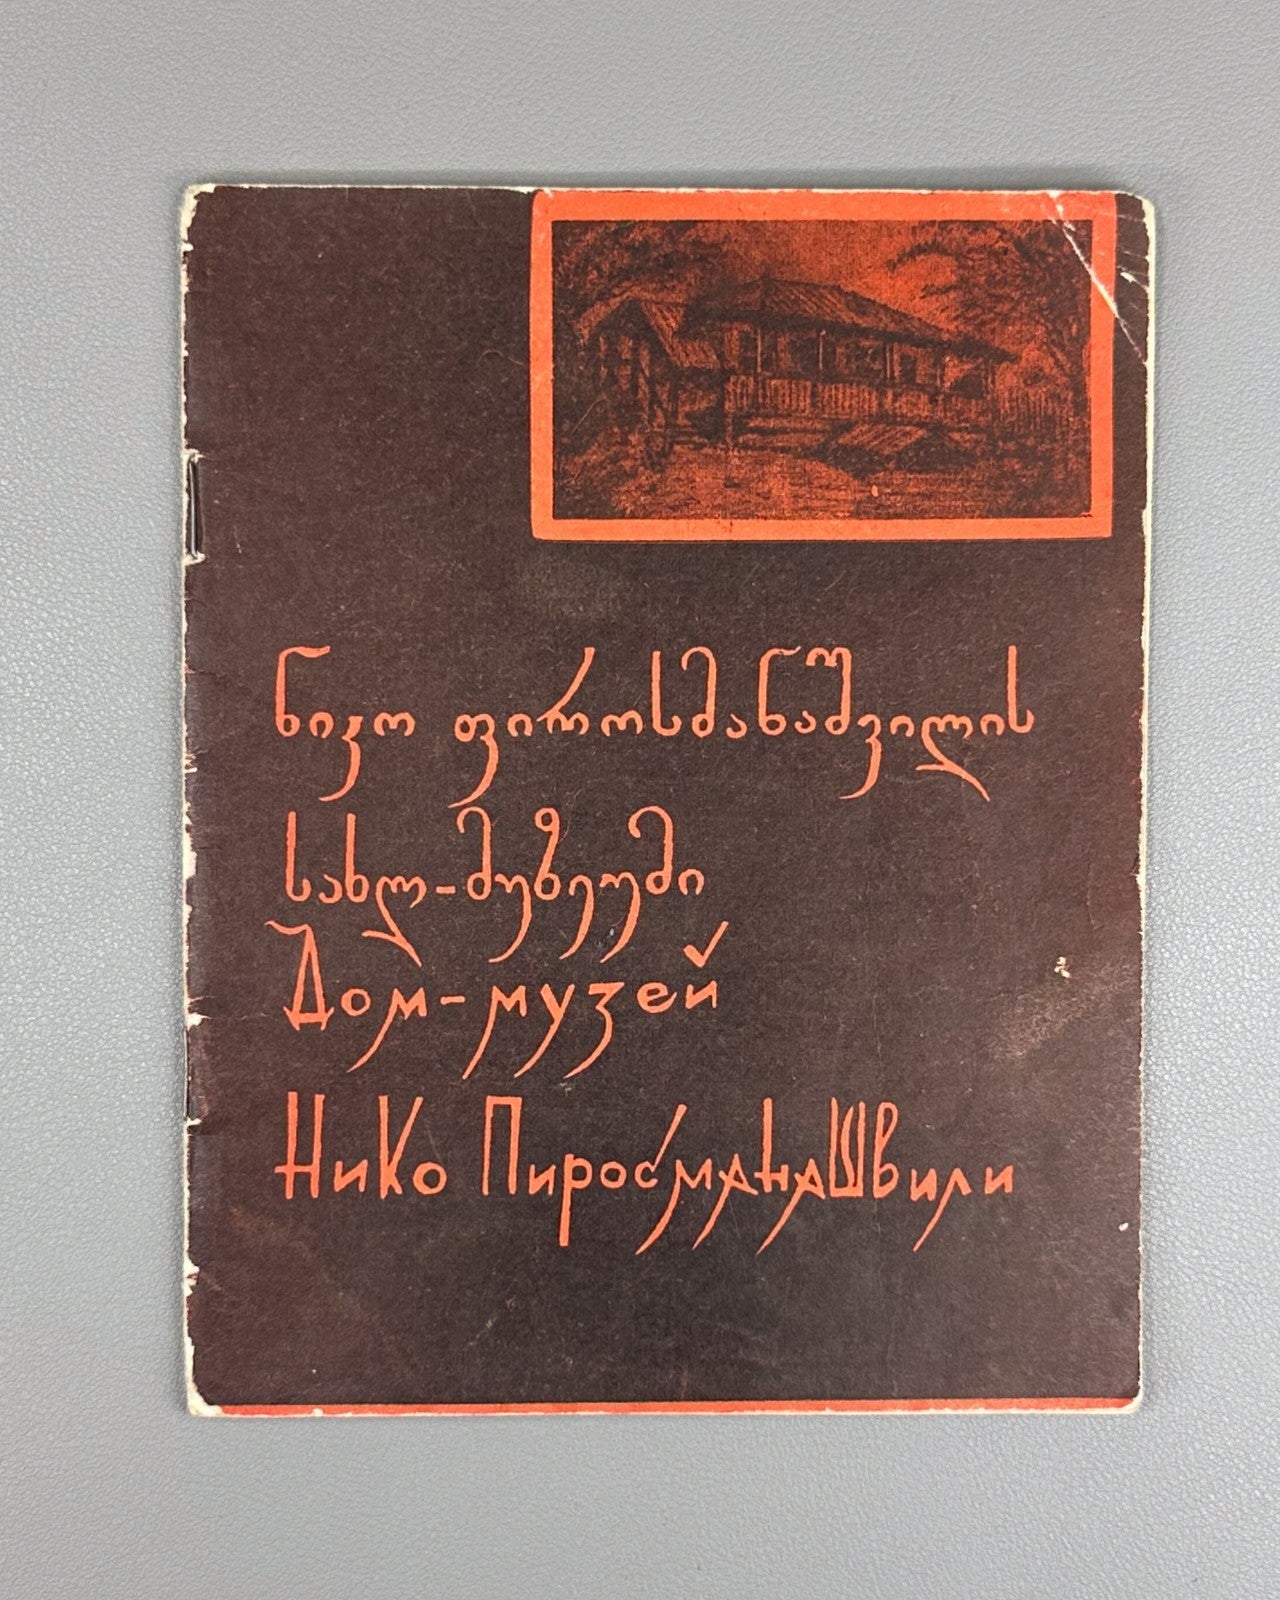 ნიკო ფიროსმანაშვილის
სახლ-მუზეუმი
Дом-музей
Нико Пиросманашвили